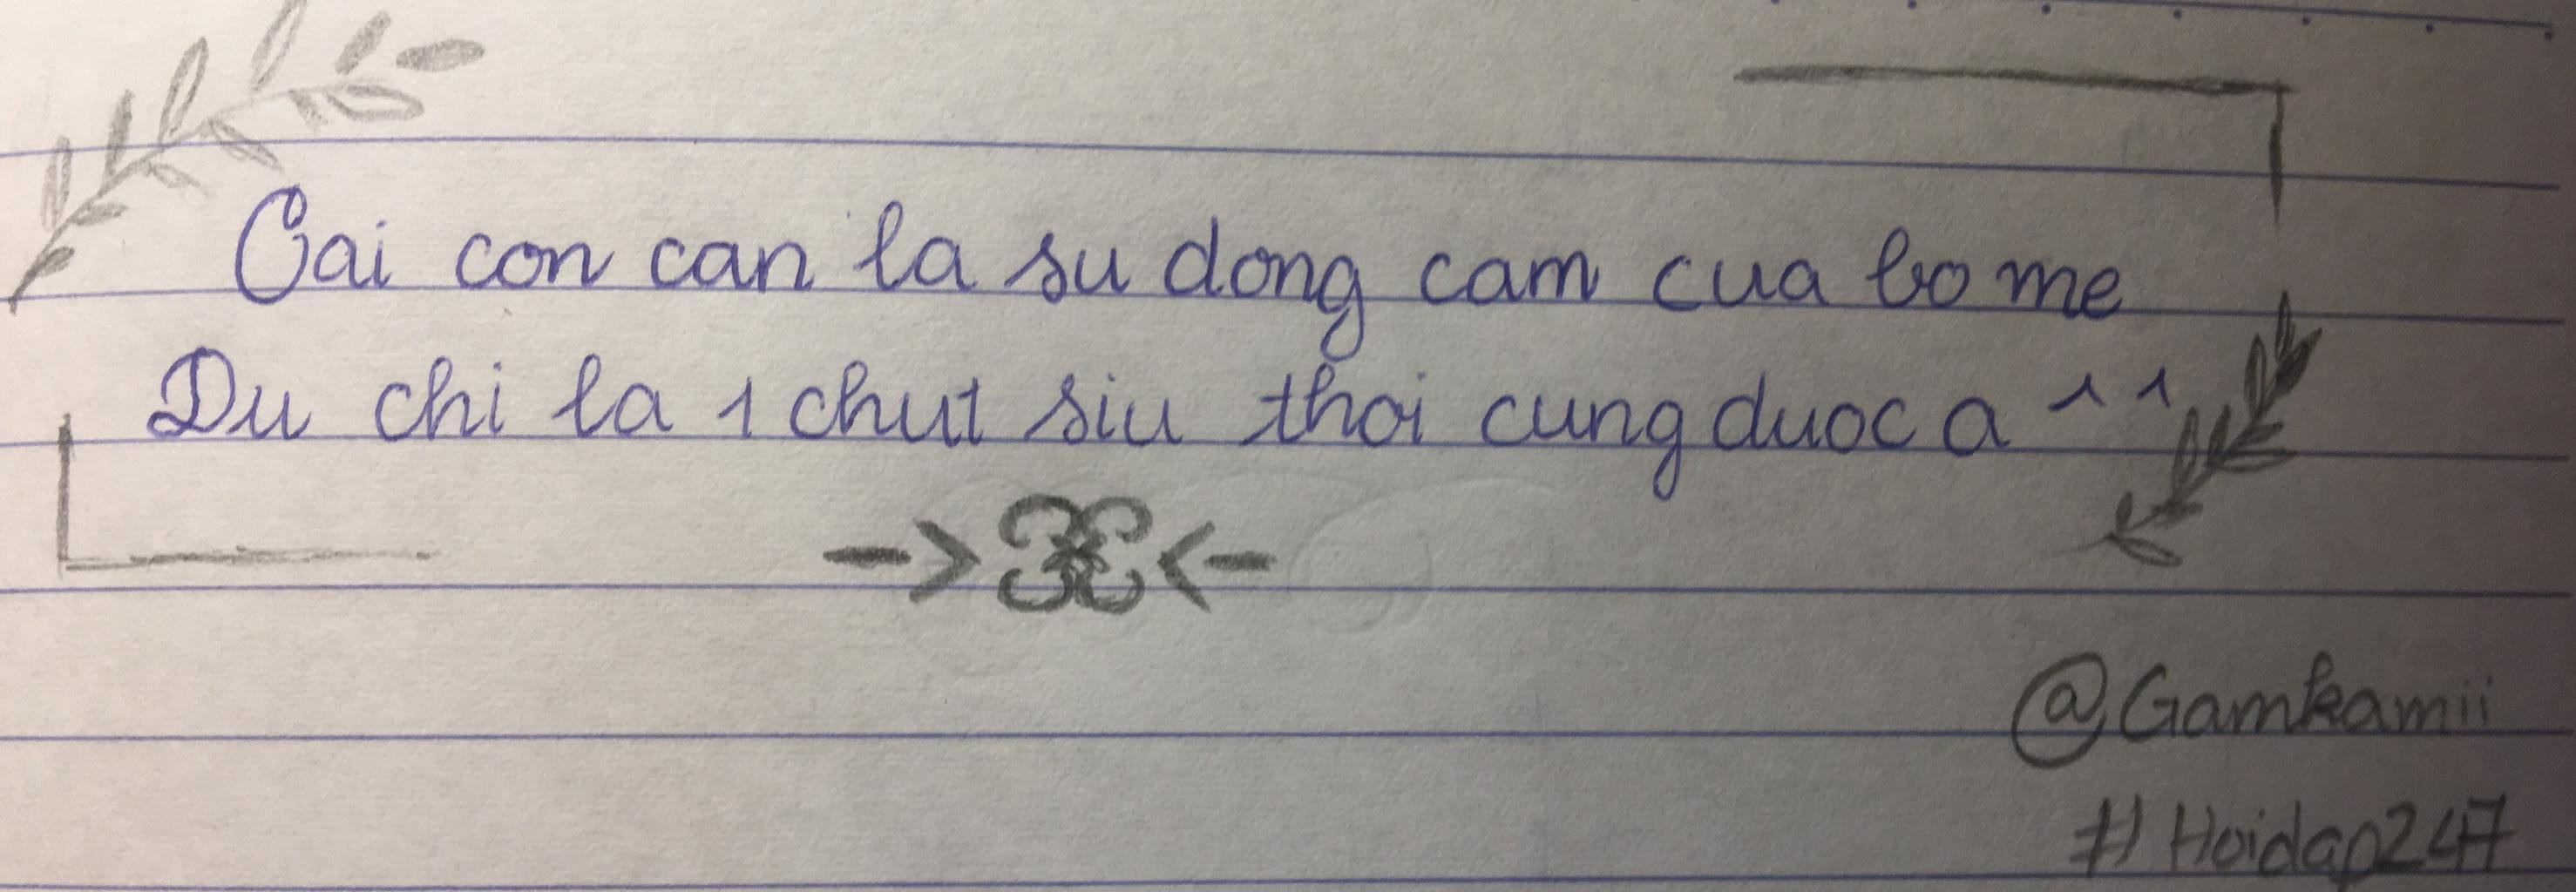 Cai con can la su dong cam cua bo me
Du chi la 1 chut siu thoi cung duoc a ^ ^
@Gamkamii
#Hoidap247